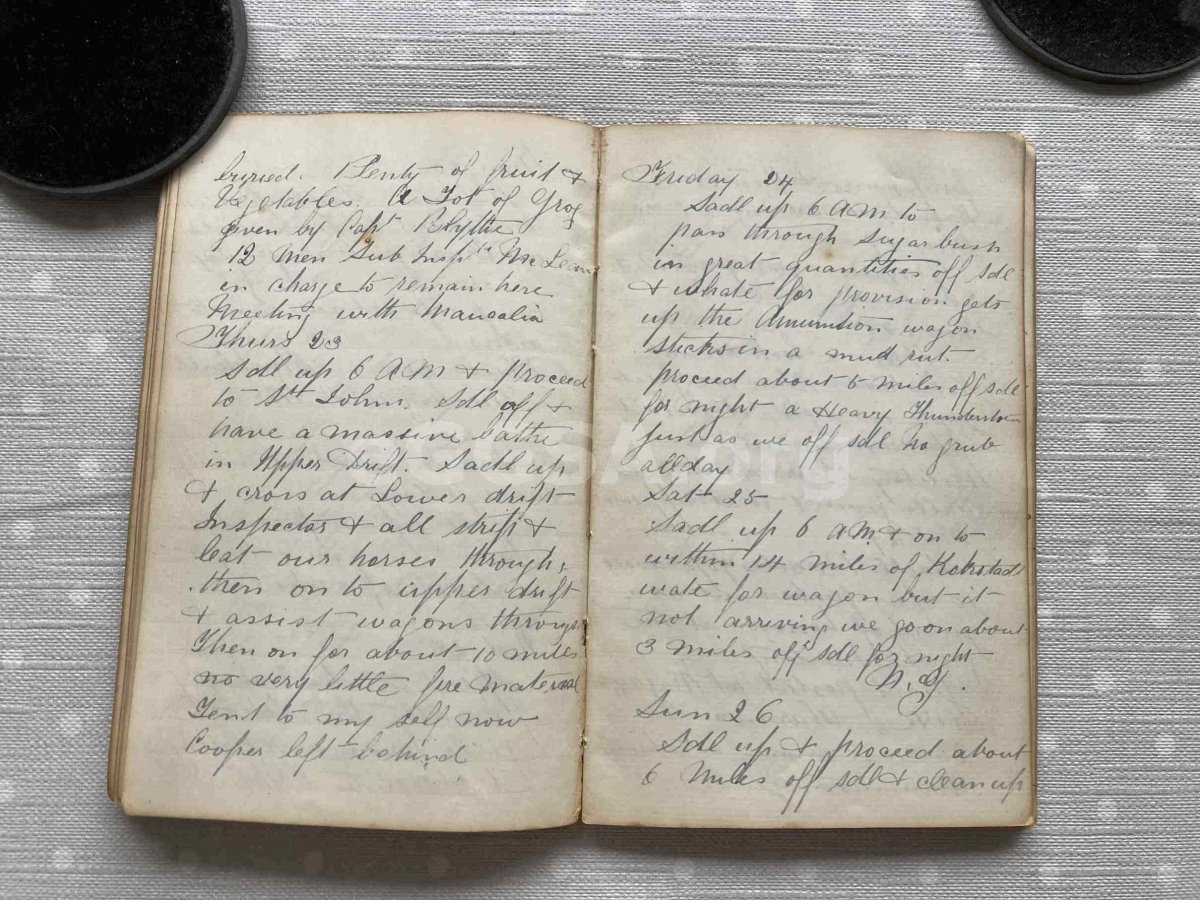 buried. Plenty of fruit &
Vegetables. A Tot of Grog
given by Capt Blythe
12 Men Sub Inspctr McLean
in charge to remain here
Meeting with
Thurs 23
Sdl up 6 AM & proceed
to St Johns. Sdl off &
have a massive bathe
in Upper Drift. Sadl up
& cross at Lower drift
Inspector & all strip &
leat our horses through,
then on to upper drift
& assist wagons through
Then on for about 10 miles
no very little fire material
Tent to my self now
Cooper left behind
Friday 24
Sadl up 6 AM to
pass through Sugar bush
in great quantities off sdl
& whate for provision gets
up the Amunition wagon
sticks in a mud rut.
proceed about 5 miles off sdl
for night a Heavy Thunderstorm
just as we off sdl No grub
allday
Sat 25
Sadl up 6 AM & on to
within 14 miles of Kokstadt
wate for wagon but it
not arriving we go on about
3 miles off sdl for night
N.G.
Sun 26
Sdl up & proceed about
6 Miles off sdl & clean up
COSA.org